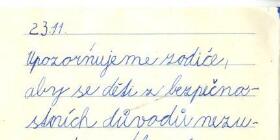 23.11.
Upozorňujeme rodiče,
aby se děti z bezpečno-
stních důvodů nezu-